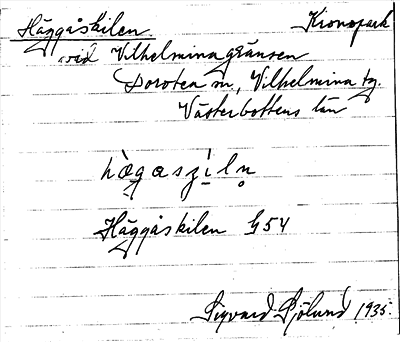 Häggåskilen Kronopark
vid Vilhelminagränsen
Dorotea sn, Vilhelmina tg.
Västerbottens län
hæ̀gasʒìln̥
Häggåskilen G54
Sigvard Sjölund 1935.